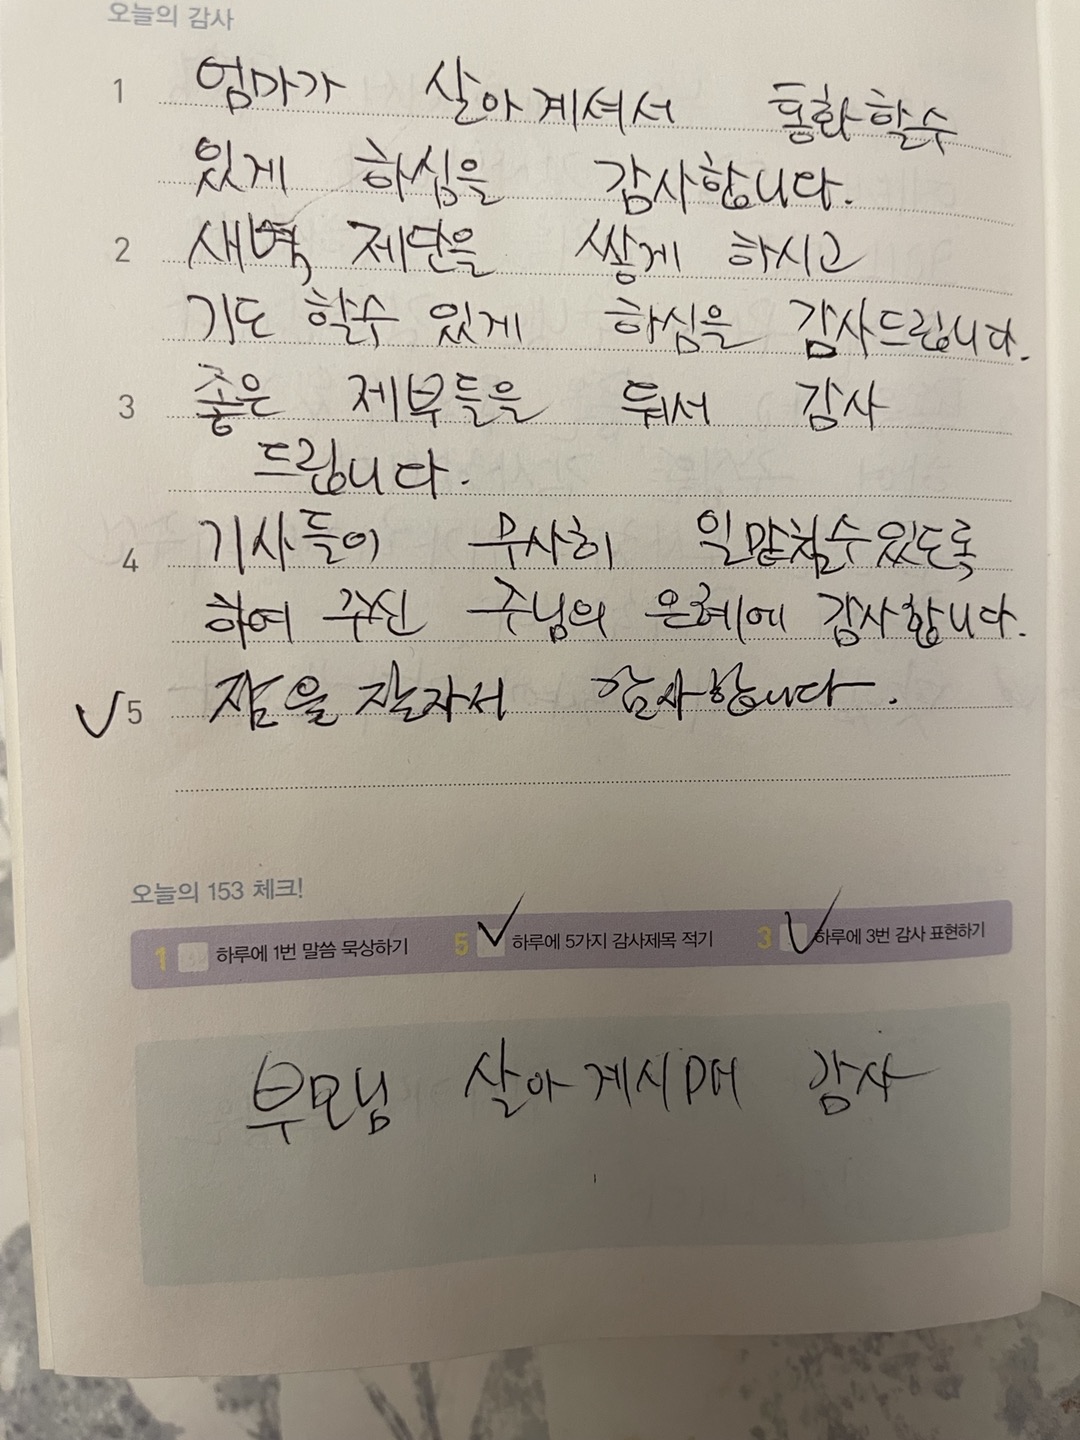 오늘의 감사
1 엄마가 살아계셔서 통화할수
있게 하심을 감사합니다.
2 새벽 제단을 쌓게 하시고
기도 할수 있게 하심을 감사드립니다.
3 좋은 제부들을 둬서 감사
드립니다.
4 기사들이 무사히 일맡칠수있도록
하여 주신 주님의 은혜에 감사합니다.
5 잠을 잘자서 감사합니다.
오늘의 153 체크!
1 하루에 1번 말씀 묵상하기 5 하루에 5가지 감사제목 적기 3 하루에 3번 감사 표현하기
부모님 살아계시며 감사